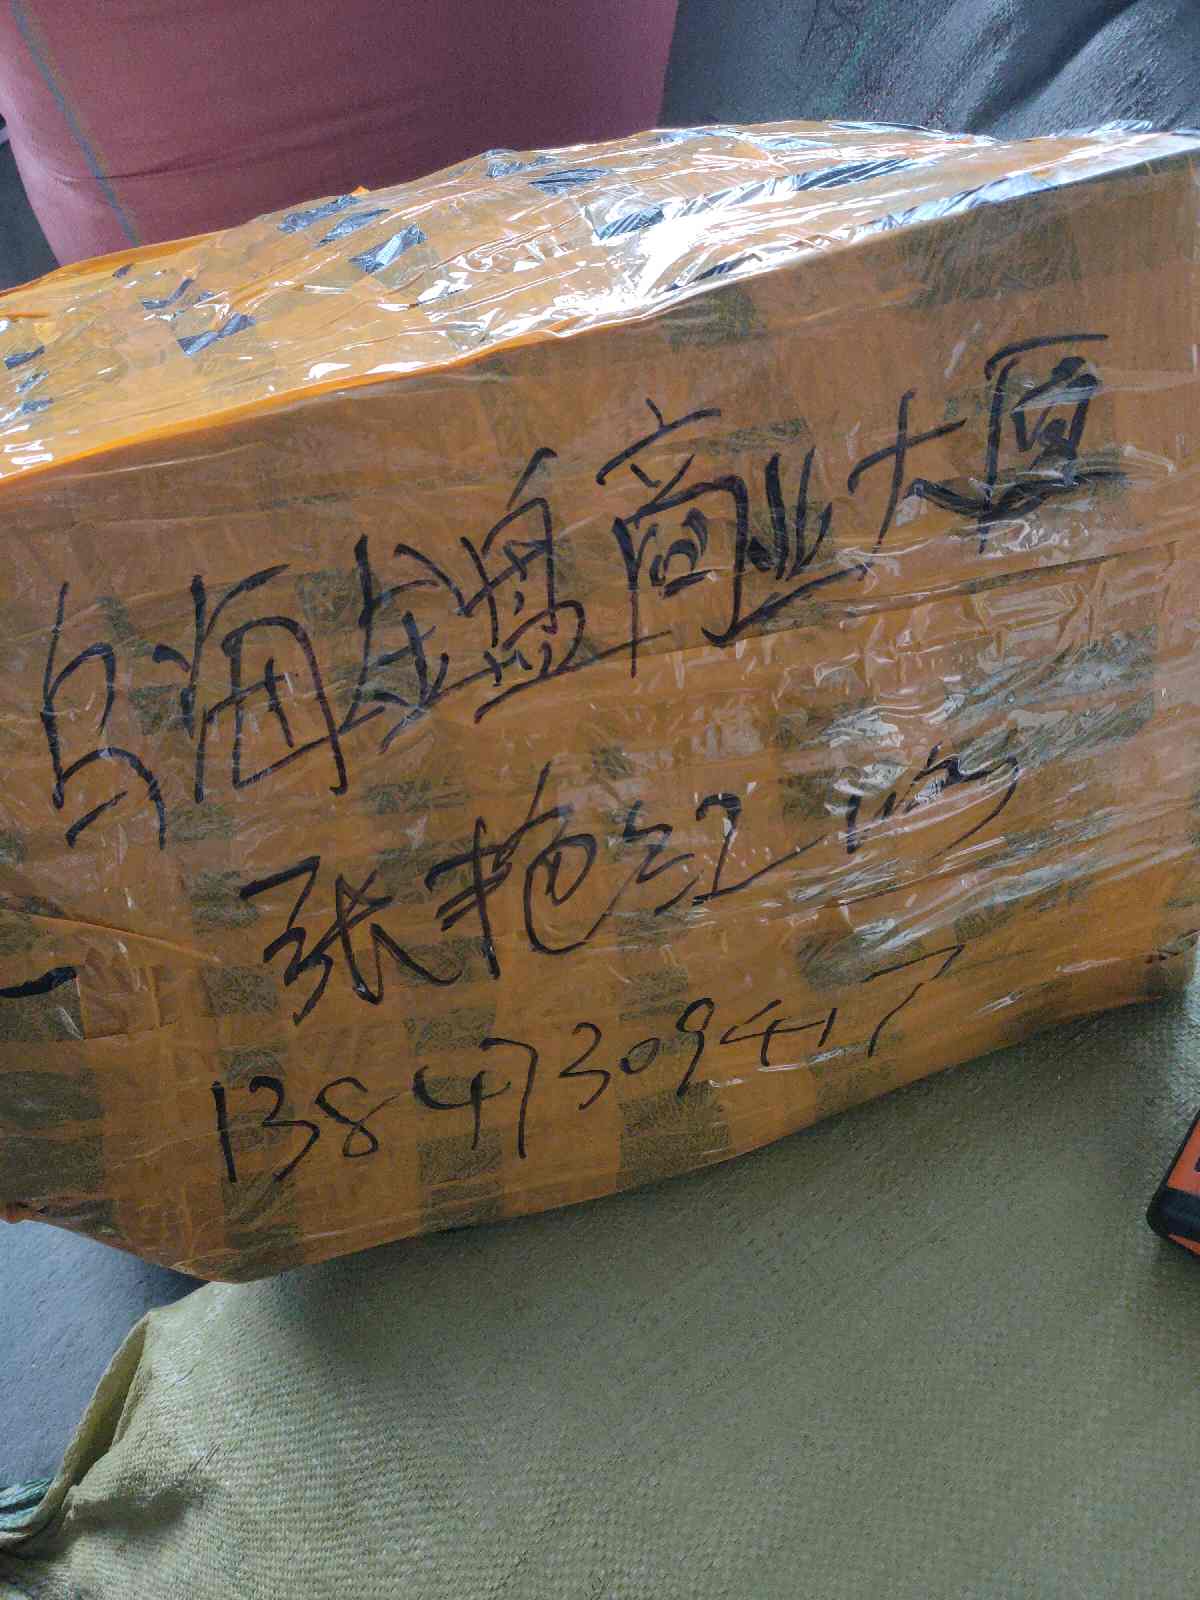 乌海金盘商业大厦
张艳红
13847309417